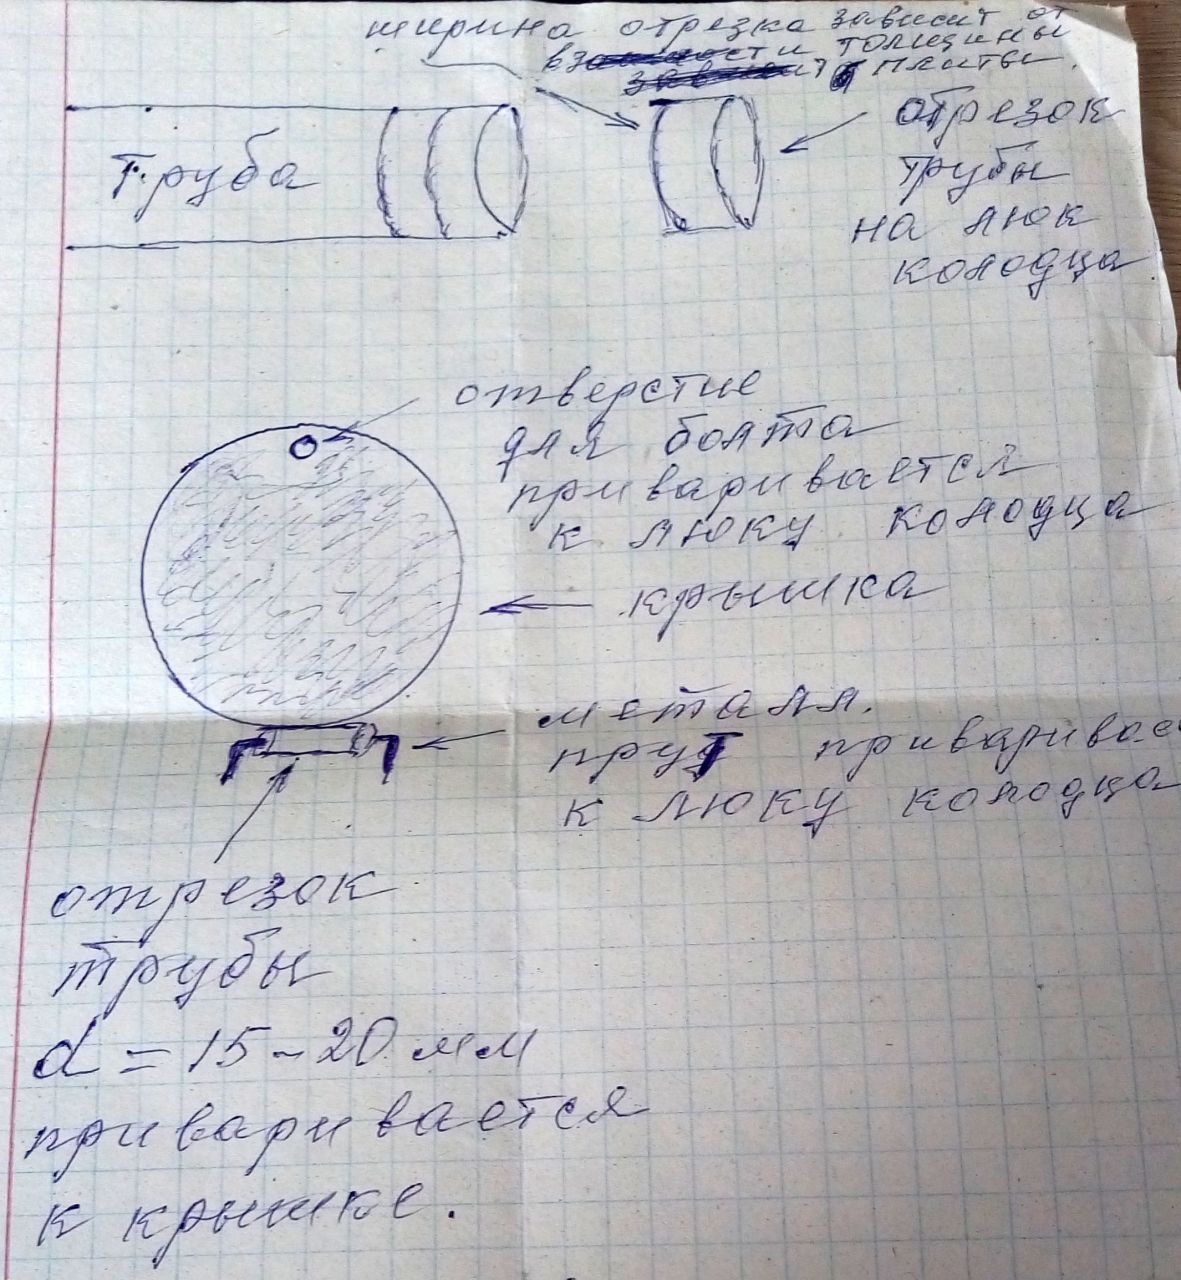 ширина отрезка зависит от
толщины
плиты.
Труба
отрезок
трубы
на люк
колодца
отверстие
для болта
приваривается
к люку колодца
крышка
металл.
прут приваривае
к люку колодца
отрезок
трубы
d = 15 - 20 мм
приваривается
к крышке.